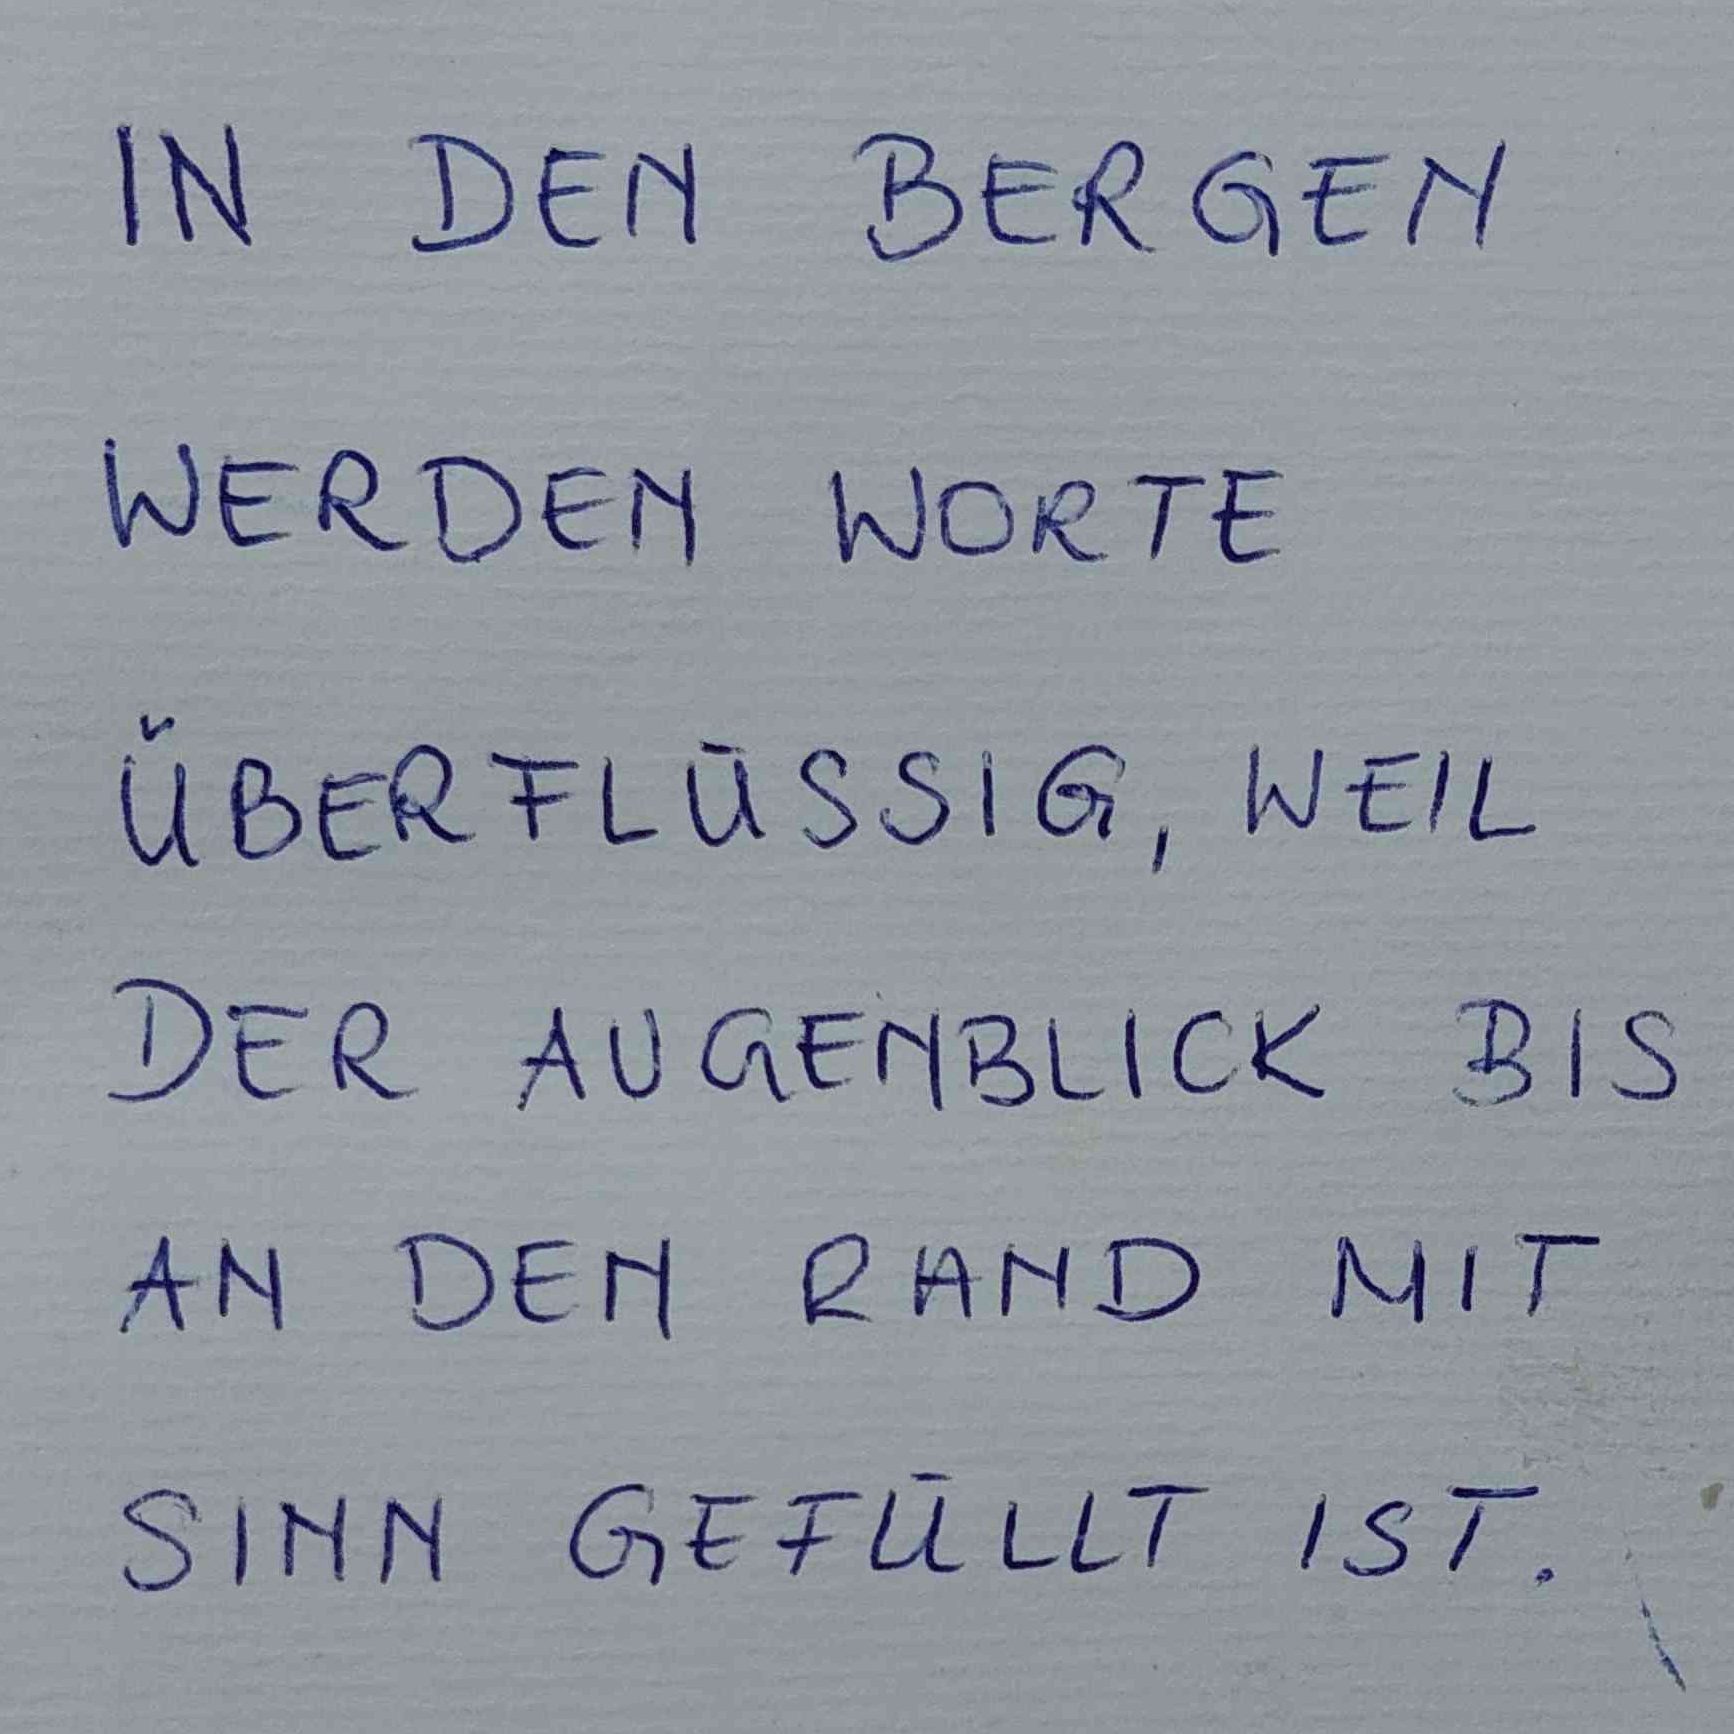 IN DEN BERGEN
WERDEN WORTE
ÜBERFLÜSSIG, WEIL
DER AUGENBLICK BIS
AN DEN RAND MIT
SINN GEFÜLLT IST.